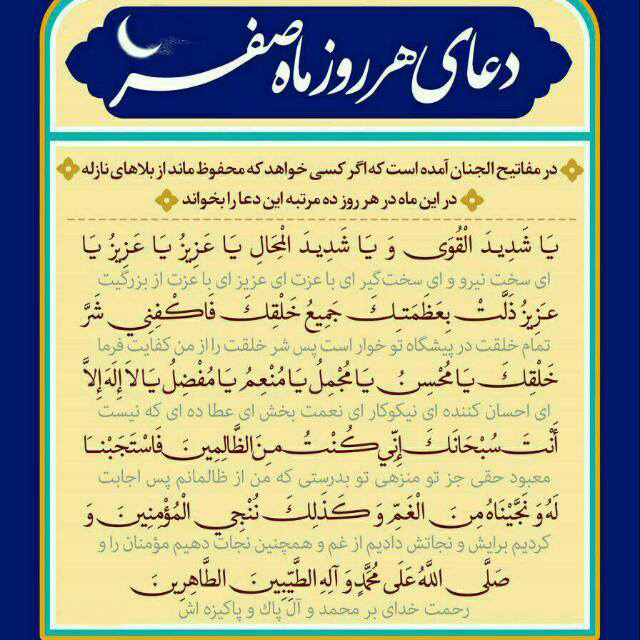 دعای هر روز ماه صفر
در مفاتیح الجنان آمده است که اگر کسی خواهد که محفوظ ماند از بلاهای نازله
در این ماه در هر روز ده مرتبه این دعا را بخواند
يَا شَدِيدَ الْقُوَى وَ يَا شَدِيدَ الْمِحَالِ يَا عَزِيزُ يَا عَزِيزُ يَا
ای سخت نیرو و ای سخت‌گیر ای با عزت ای عزیز ای با عزت از بزرگیت
عَزِيزُ ذَلَّتْ بِعَظَمَتِكَ جَمِيعُ خَلْقِكَ فَاكْفِنِي شَرَّ
تمام خلقت در پیشگاه تو خوار است پس شر خلقت را از من کفایت فرما
خَلْقِكَ يَا مُحْسِنُ يَا مُجْمِلُ يَا مُنْعِمُ يَا مُفْضِلُ يَا لاَ إِلَهَ إِلاَّ
ای احسان کننده ای نیکوکار ای نعمت بخش ای عطا ده ای که نیست
أَنْتَ سُبْحَانَكَ إِنِّي كُنْتُ مِنَ الظَّالِمِينَ فَاسْتَجَبْنَا
معبود حقی جز تو منزهی تو بدرستی که من از ظالمانم پس اجابت
لَهُ وَ نَجَّيْنَاهُ مِنَ الْغَمِّ وَ كَذَلِكَ نُنْجِي الْمُؤْمِنِينَ وَ
کردیم برایش و نجاتش دادیم از غم و همچنین نجات دهیم مؤمنان را و
صَلَّى اللَّهُ عَلَى مُحَمَّدٍ وَ آلِهِ الطَّيِّبِينَ الطَّاهِرِينَ
رحمت خدای بر محمد و آل پاک و پاکیزه اش